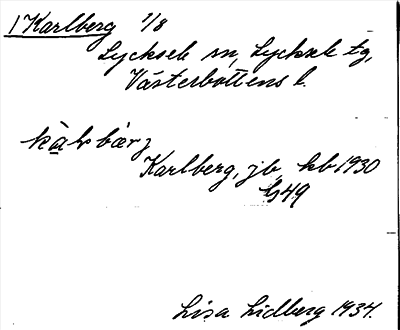 1 Karlberg 1/8
Lycksele sn, Lycksele tg,
Västerbottens l.
Karlberg, jb, kb 1930
Lisa Lidberg 1934.